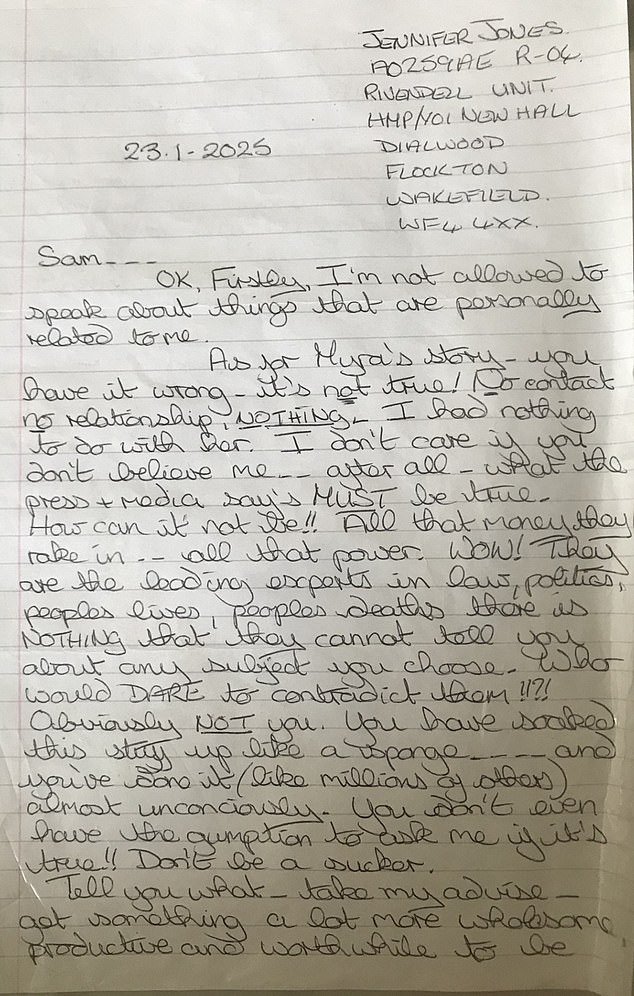 JENNIFER JONES.
A0259AE R-04.
RIVENDELL UNIT.
HMP/YOI NEW HALL
23.1-2025
DIALWOOD
FLOCKTON
WAKEFIELD.
WF4 4XX.
Sam---
OK, Firstly, I'm not allowed to
speak about things that are personally
related to me.
As for Myra's story - you
have it wrong - it's not true! No contact
no relationship, NOTHING - I had nothing
to do with her. I don't care if you
don't believe me -- after all - what the
press + media say's MUST be true -
How can it not be!! All that money they
rake in -- all that power. WOW! They
are the leading experts in law, politics,
peoples lives, peoples deaths there is
NOTHING that they cannot tell you
about any subject you choose - Who
would DARE to contradict them!!?!
Obviously NOT you. You have soaked
this story up like a sponge ---- and
you've done it (like millions of others)
almost unconciously. You don't even
have the gumption to ask me if it's
true!! Don't be a sucker.
Tell you what - take my advise -
get something a lot more wholesome,
productive and worthwhile to be